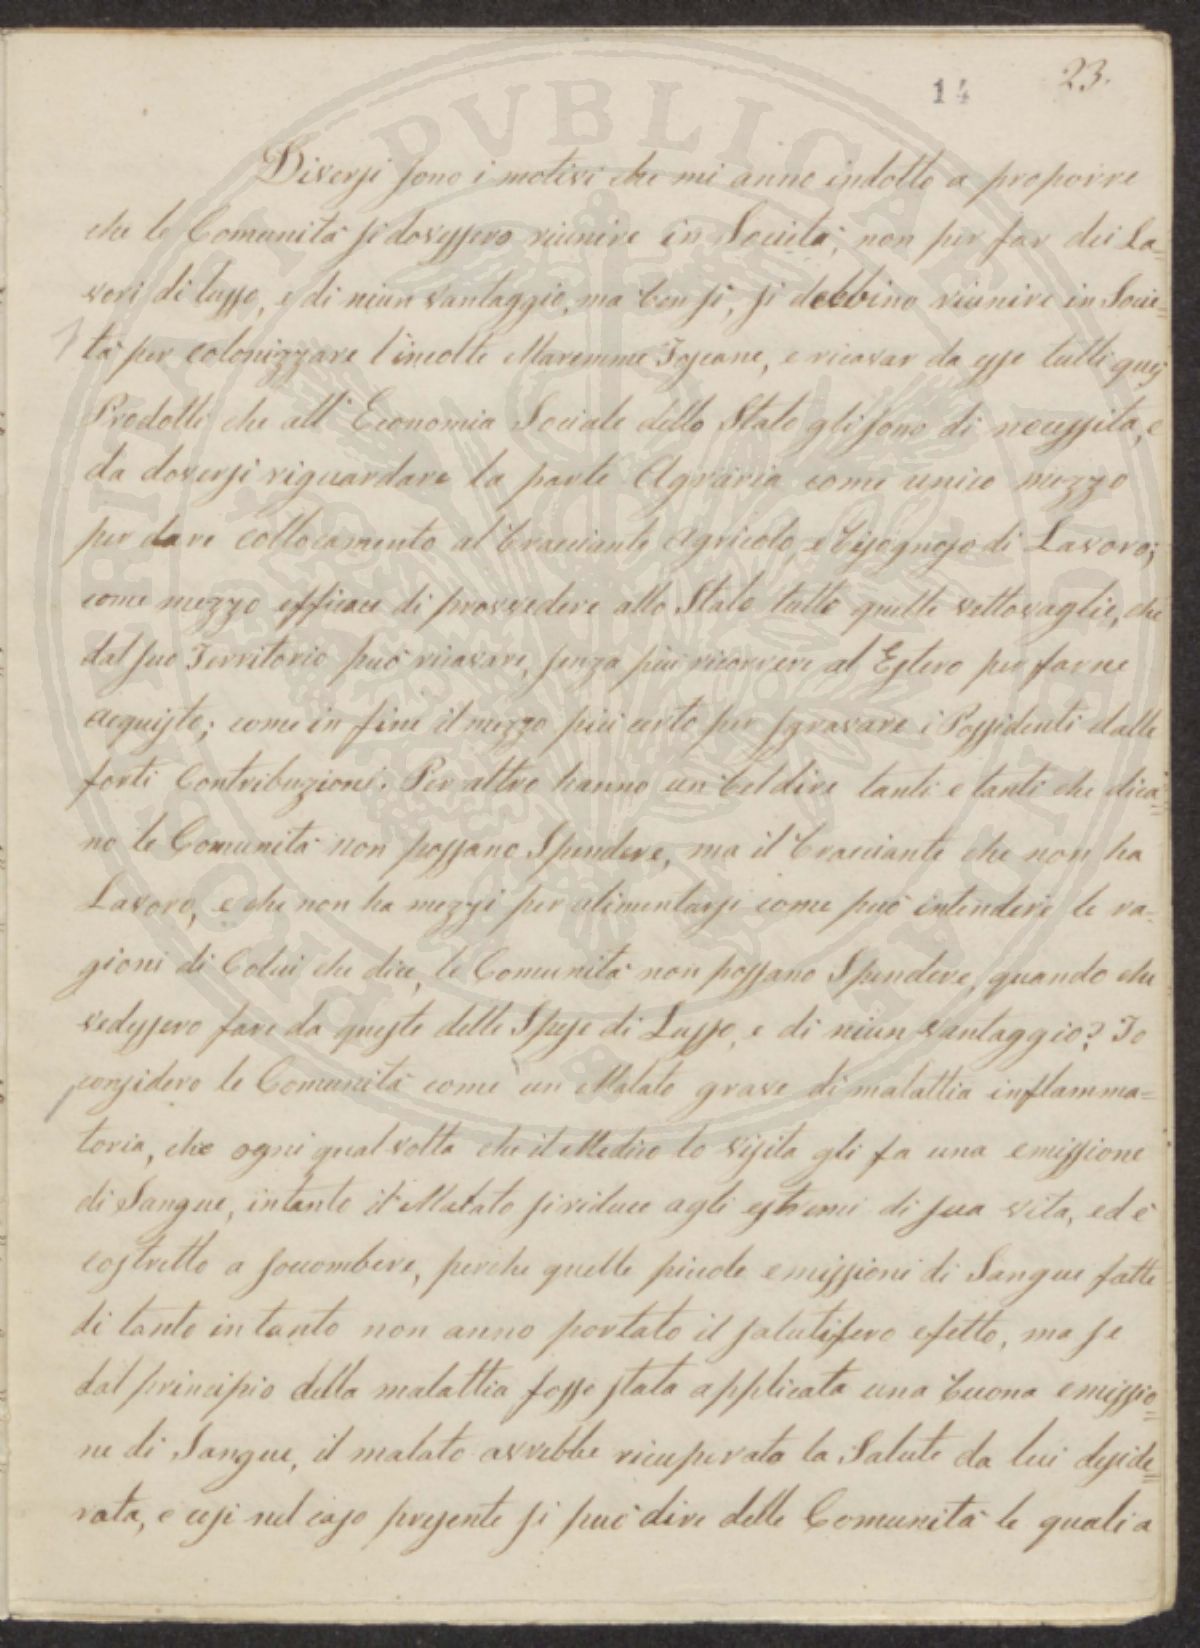 14
23.
Diversi sono i motivi che mi anno indotto a proporre
che le Comunità si dovessero riunire in Società, non per far dei La=
vori di lusso, e di niun vantaggio, ma ben sì, si debbino riunire in Socie=
tà per colonizzare l'incolte Maremme Toscane, e ricavar da esse tutti quei
Prodotti che all'Economia Sociale dello Stato gli sono di necessità, e
da doversi riguardare la parte Agraria come unico mezzo
per dare collocamento al bracciante Agricolo, e bisognoso di Lavoro;
come mezzo efficace di provvedere allo Stato tutte quelle vettovaglie, che
dal suo Territorio può ricavare, senza più ricorrere al Estero per farne
acquisto; come in fine il mezzo più certo per sgravare i Possidenti dalle
forti Contribuzioni. Per altro hanno un bel dire tanti e tanti che dica=
no le Comunità non possano Spendere, ma il bracciante che non ha
Lavoro, e che non ha mezzi per alimentarsi come può intendere le ra=
gioni di Colui che dice, le Comunità non possano Spendere, quando che
vedessero fare da queste delle Spese di Lusso, e di niun vantaggio? Io
considero le Comunità come un Malato grave di malattia inflamma=
toria, che ogni qual volta che il Medico lo visita gli fa una emissione
di Sangue, intanto il Malato si riduce agli estremi di sua vita, ed è
costretto a soccombere, perche quelle piccole emissioni di Sangue fatte
di tanto in tanto non anno portato il salutifero efetto, ma se
dal principio della malattia fosse stata applicata una buona emissio=
ne di Sangue, il malato avrebbe ricuperata la Salute da lui deside=
rata, e così nel caso presente si può dire delle Comunità le quali a
PVBLICAE